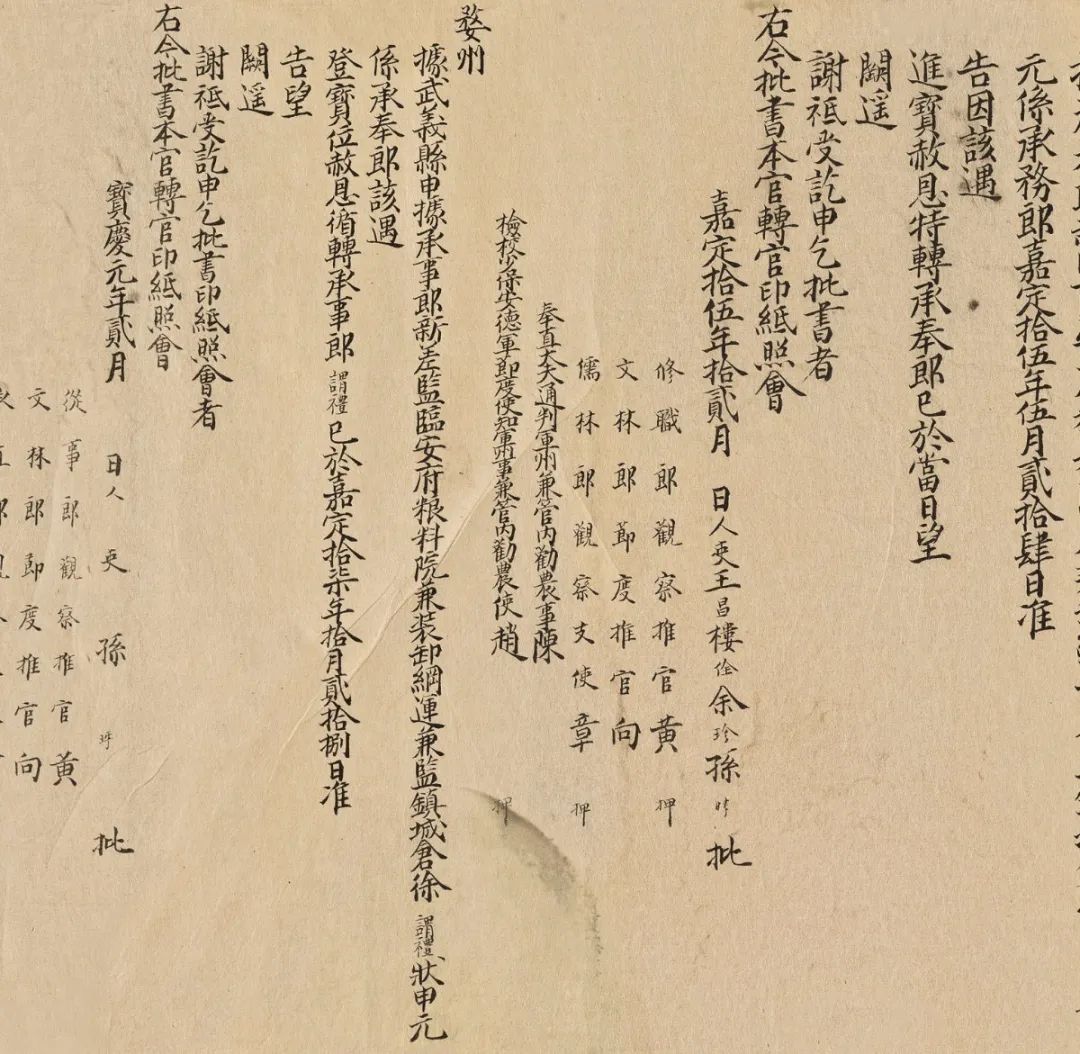 元係承務郎嘉定拾伍年伍月貳拾肆日准
告因該遇
進寶赦恩特轉承奉郎已於當日望
闕遥
謝祗受訖申乞批書者
右今批書本官轉官印紙照會
嘉定拾伍年拾貳月 日人吏王昌樓 余珍孫 批
修職郎觀察推官黄 押
文林郎節度推官向
儒林郎觀察支使章 押
奉直大夫通判軍州兼管内勸農事陳
檢校少保安德軍節度使知軍州事兼管内勸農使趙 押
婺州
據武義縣申據承事郎新差監臨安府粮料院兼装卸綱運兼監鎮城倉徐謂禮狀申元
係承奉郎該遇
登寶位赦恩循轉承事郎謂禮已於嘉定拾柒年拾月貳拾捌日准
告望
闕遥
謝祗受訖申乞批書印紙照會者
右今批書本官轉官印紙照會
寶慶元年貳月 日人吏孫 批
從事郎觀察推官黄
文林郎節度推官向